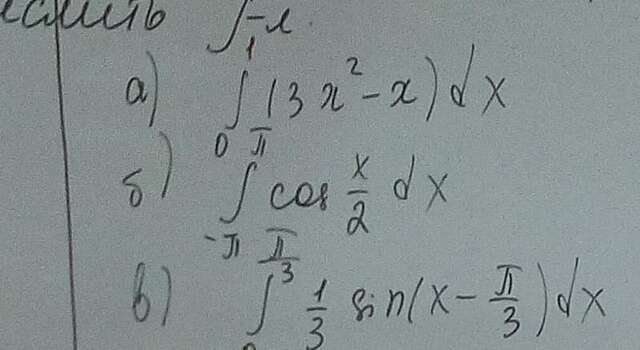 а) ∫₀¹ (3x² - x) dx
б) ∫₋π^π cos x/2 dx
в) ∫₀^(π/3) 1/3 sin(x - π/3) dx